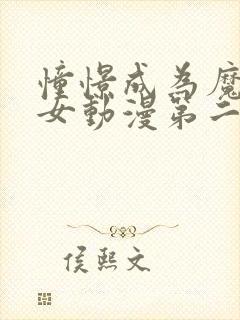 憧憬成為魔
女動漫第二
侯熙文